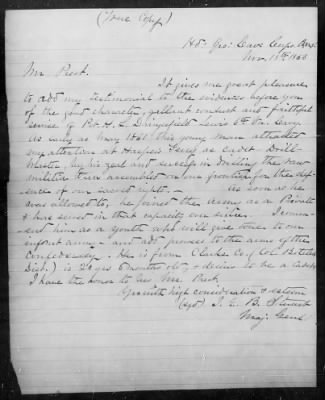 (True Copy)
Hd. Qrs: Cav. Corps
Nov. 13th 1863
Mr. Prest.
It gives me great pleasure
to add my testimonial to the evidences before you
of the good character, gallant conduct and faithful
service of Pvt. H. L. D. Lewis 6th Va. Cavy.
As early as May 1861 this young man attracted
my attention at Harpers Ferry as Cadet Drill-
Master, by his zeal and success in drilling the raw
militia then assembled on our frontier for the def-
ence of our sacred rights. — As soon as he
was allowed to, he joined the army as a Private
& has served in that capacity ever since. I comm-
end him as a youth who will give tone to our
uniform and prowess to the arms of the
Confederacy. He is from Clarke Co. (Col.
Dist.) is 20 yrs 6 months old, & desires to be a Cadet.
I have the honor to be Mr. Prest.
Yrs with high consideration & esteem
(sgd) J. E. B. Stuart
Maj. Genl.